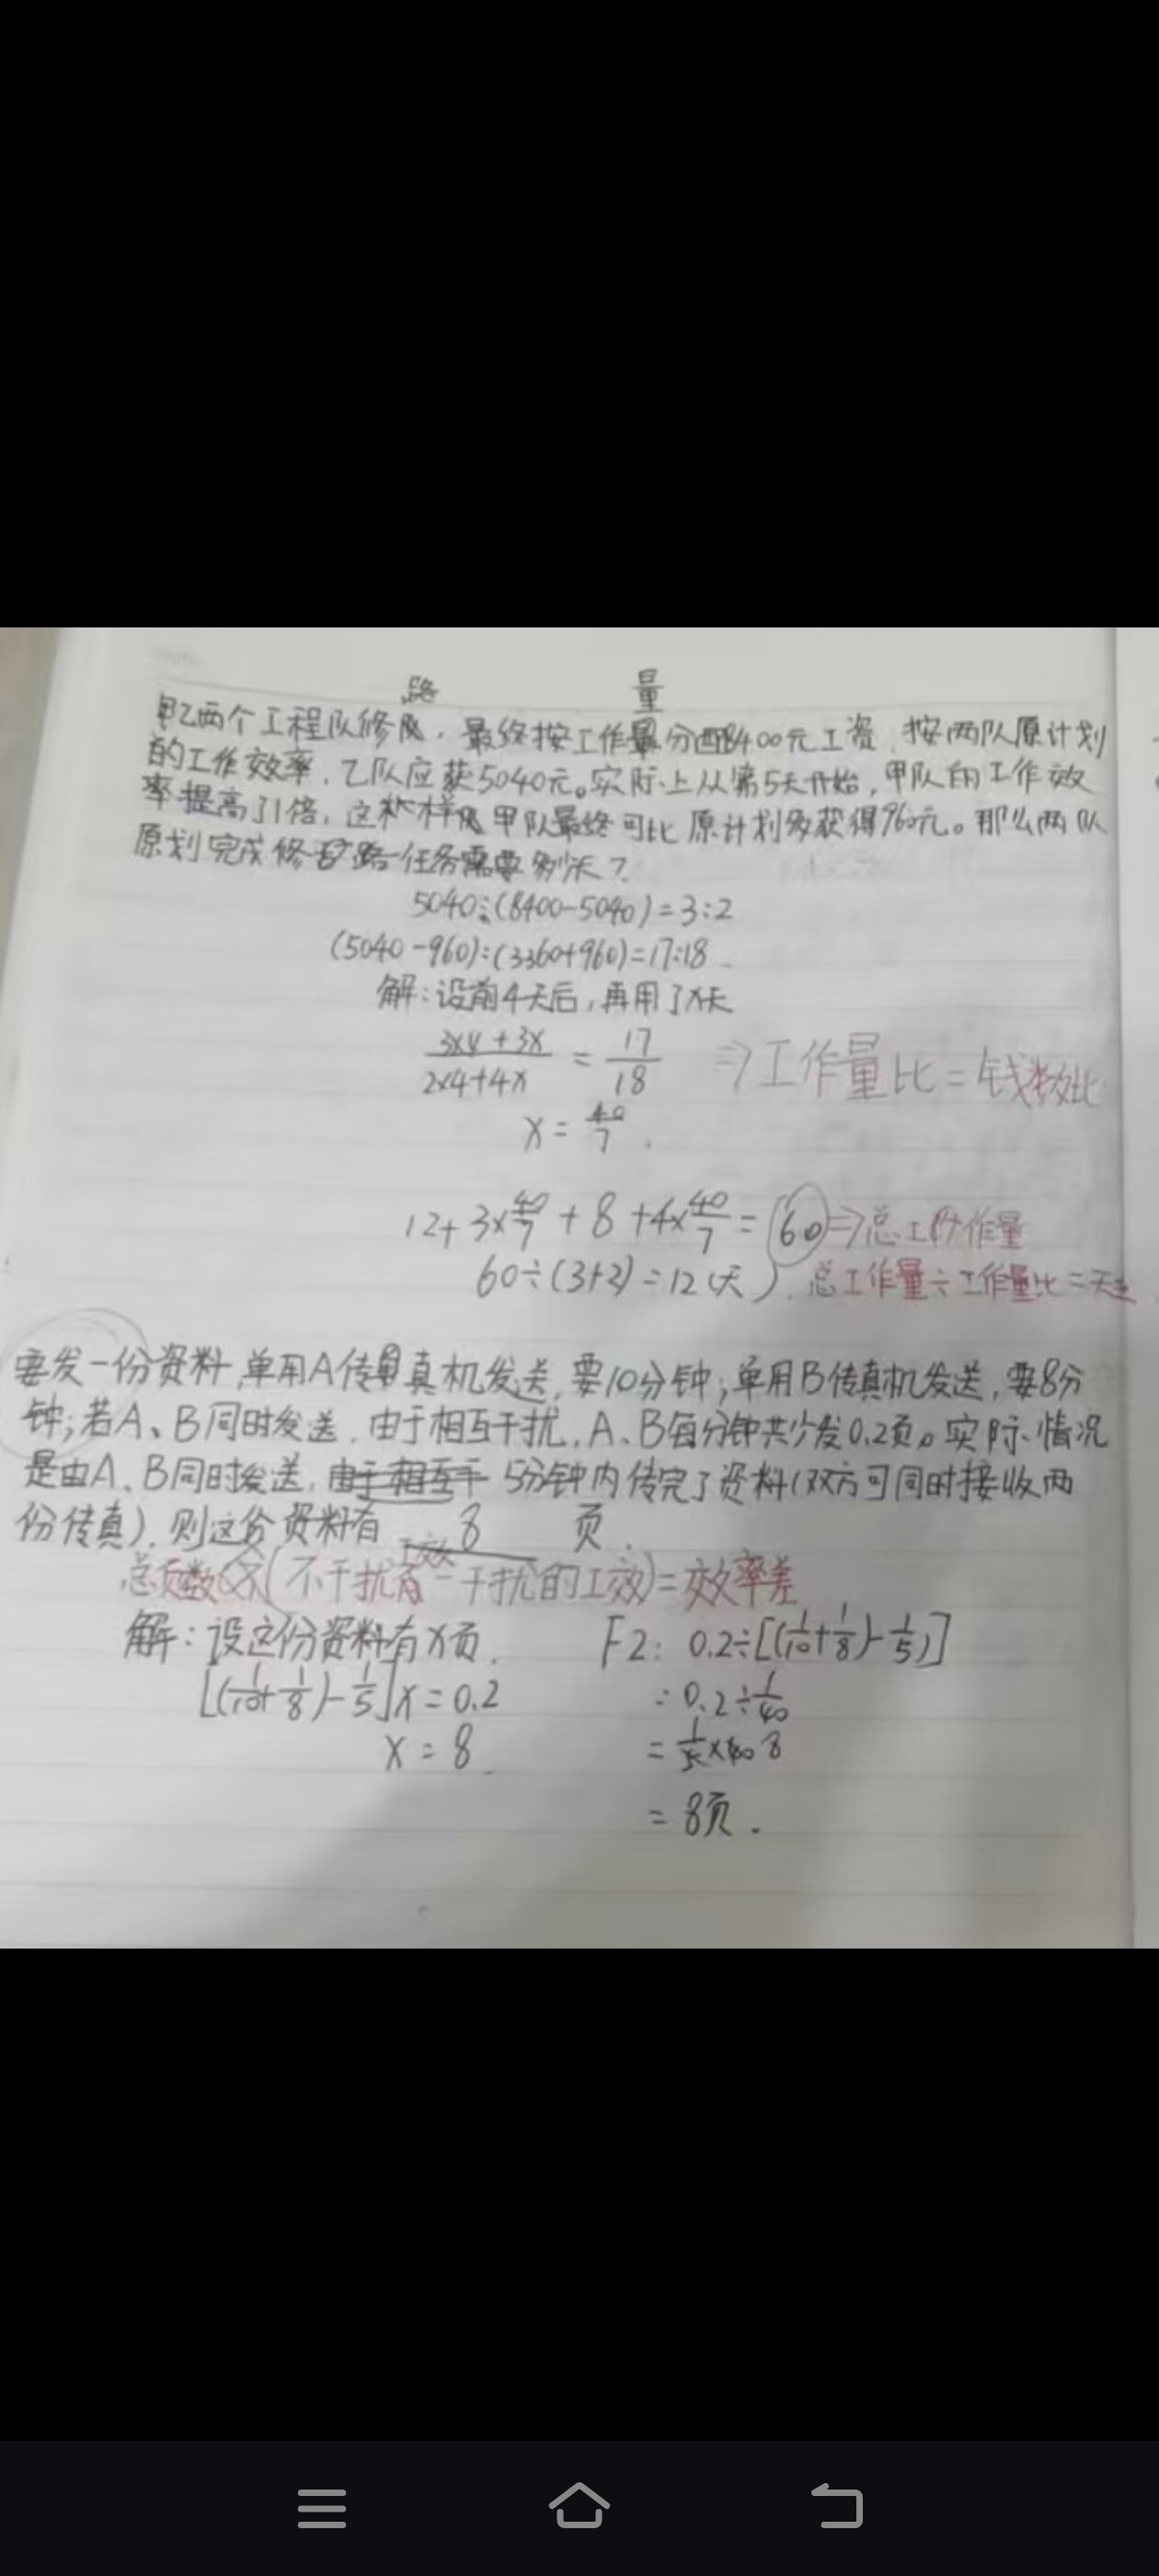 路 量
甲乙两个工程队修路，最终按工作量分配8400元工资，按两队原计划
的工作效率，乙队应获5040元。实际上从第5天开始，甲队的工作效
率提高了1倍，这样甲队最终可比原计划多获得960元。那么两队
原划完成修路任务需要多少天？
5040:(8400-5040)=3:2
(5040-960):(3360+960)=17:18
解：设前4天后，再用了x天
(3×4+3x)/(2×4+4x) = 17/18 ⇒工作量比=钱数比
x = 40/7.
12+3×40/7+8+4×40/7=60⇒总工作量
60÷(3+2)=12(天). 总工作量÷工作量比=天
要发一份资料,单用A传真机发送,要10分钟;单用B传真机发送,要8分
钟;若A、B同时发送,由于相互干扰,A、B每分钟共少发0.2页。实际情况
是由A、B同时发送,由于相互干 5分钟内传完了资料(双方可同时接收两
份传真),则这份资料有 8 页.
工效
总页数×(不干扰 - 干扰的工效)=效率差
解：设这份资料有x页. F2: 0.2÷[(1/10+1/8)-1/5)]
[(1/10+1/8)-1/5]x=0.2 =0.2÷1/40
x=8. =1/5×40 8
=8页.